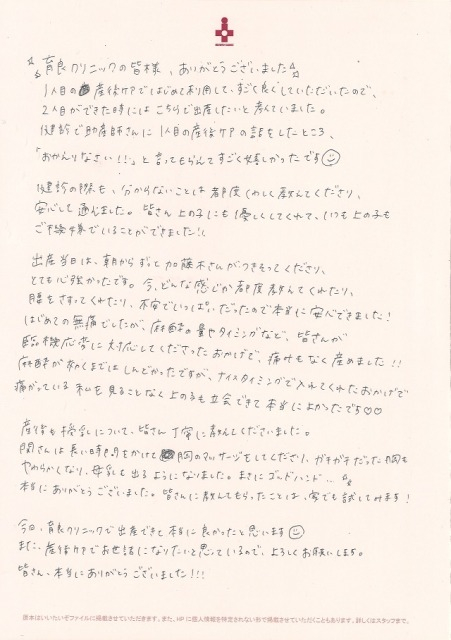 ☆育良クリニックの皆様、ありがとうございました☆
1人目の産後ケアではじめて利用して、すごく良くしていただいたので、
2人目ができた時にはこちらで出産したいと考えていました。
健診で助産師さんに1人目の産後ケアの話をしたところ、
「おかえりなさい!!」と言ってもらえてすごく嬉しかったです☺
健診の際も、分からないことは都度くわしく教えてくださり、
安心して通えました。皆さん上の子にも優しくしてくれて、いつも上の子も
ご機嫌でいることができました!!
出産当日は、朝からずっと加藤木さんがつきそってくださり、
とても心強かったです。今、どんな感じか都度教えてくれたり、
腰をさすってくれたり、不安でいっぱいだったので本当に安心できました!
はじめての無痛でしたが、麻酔の量やタイミングなど、皆さんが
臨機応変に対応してくださったおかげで、痛みもなく産めました!!
麻酔が効くまではしんどかったですが、ナイスタイミングで入れてくれたおかげで
痛がっている私を見ることなく上の子も立会できて本当によかったです♡♡
産後も授乳について、皆さん丁寧に教えてくださいました。
関さんは長い時間をかけて胸のマッサージをしてくださり、ガチガチだった胸も
やわらかくなり、母乳も出るようになりました。まさにゴッドハンド…☆
本当にありがとうございました。皆さんに教えてもらったことは、家でも試してみます!
今回、育良クリニックで出産できて本当に良かったと思います☺
また、産後ケアでお世話になりたいと思っているので、よろしくお願いします。
皆さん、本当にありがとうございました!!!
原本はいいたいぞファイルに掲載させていただきます。また、HPに個人情報を特定されない形で掲載させていただくこともあります。詳しくはスタッフまで。